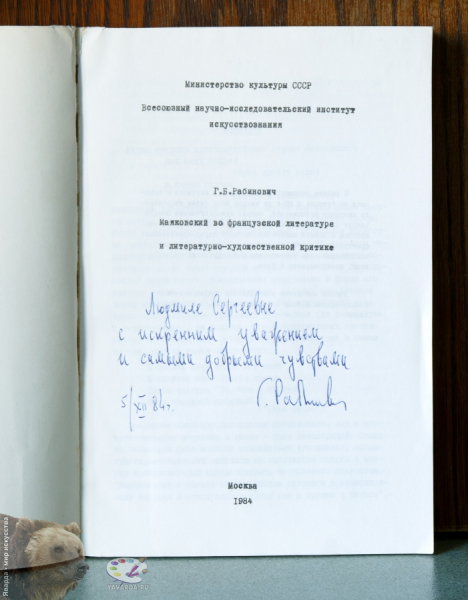 Министерство культуры СССР
Всесоюзный научно-исследовательский институт
искусствознания
Г.Б.Рабинович
Маяковский во французской литературе
и литературно-художественной критике
Людмиле Сергеевне
с искренним уважением
и самыми добрыми чувствами
5/XII 84г.
Г. Рабинович
Москва
1984
Яварда - мир искусства
YAVARDA.RU